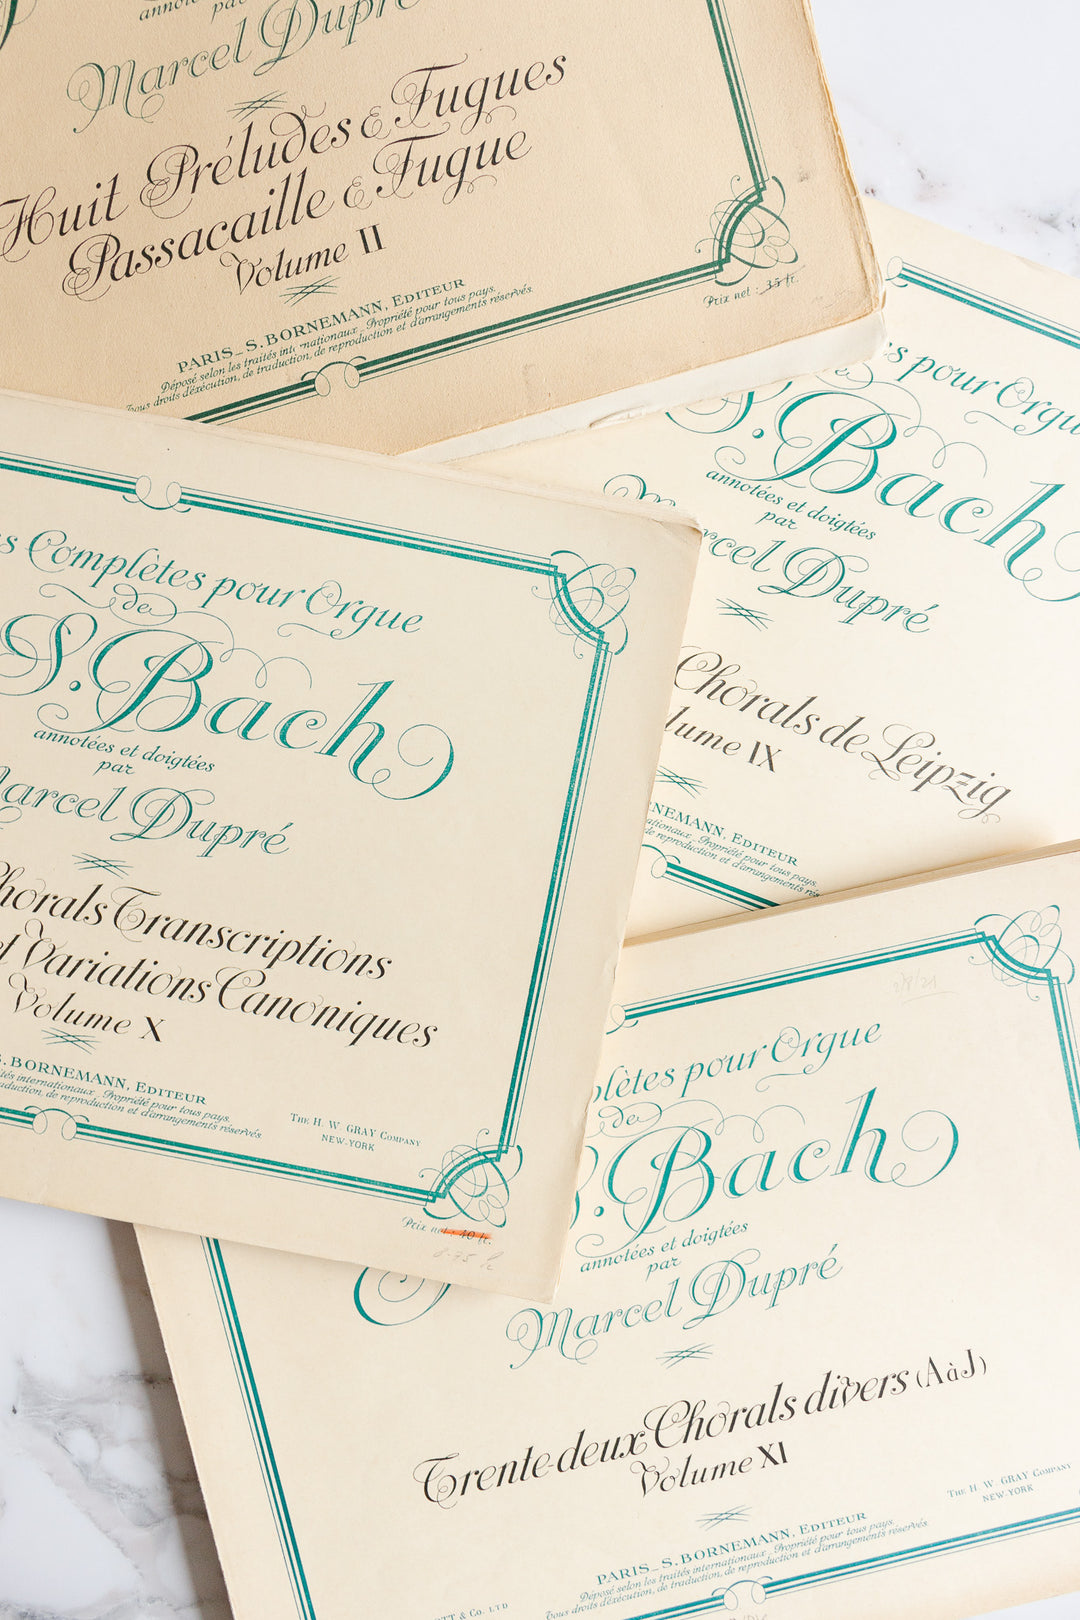 annotées
par
Marcel Dupré
Huit Préludes & Fugues
Passacaille & Fugue
Volume II
PARIS_S. BORNEMANN, EDITEUR
Déposé selon les traités internationaux. Propriété pour tous pays.
Tous droits d'éxécution, de traduction, de reproduction et d'arrangements réservés.
Prix net : 35 fr.
pour Orgue
de
S. Bach
annotées et doigtées
par
Marcel Dupré
Chorals de Leipzig
Volume IX
BORNEMANN, EDITEUR
internationaux. Propriété pour tous pays.
de reproduction et d'arrangements réservés
Complètes pour Orgue
de
S. Bach
annotées et doigtées
par
Marcel Dupré
Chorals Transcriptions
et Variations Canoniques
Volume X
S. BORNEMANN, EDITEUR
traités internationaux. Propriété pour tous pays.
traduction, de reproduction et d'arrangements réservés.
THE H. W. GRAY COMPANY
NEW-YORK
Prix net : 40 fr.
8.75
Complètes pour Orgue
de
S. Bach
annotées et doigtées
par
Marcel Dupré
Trente-deux Chorals divers (A à J)
Volume XI
THE H. W. GRAY COMPANY
NEW YORK
PARIS_S. BORNEMANN, EDITEUR
Déposé selon les traités internationaux. Propriété pour tous pays.
Tous droits d'éxécution, de traduction, de reproduction et d'arrangements réservés.
& CO. LTD